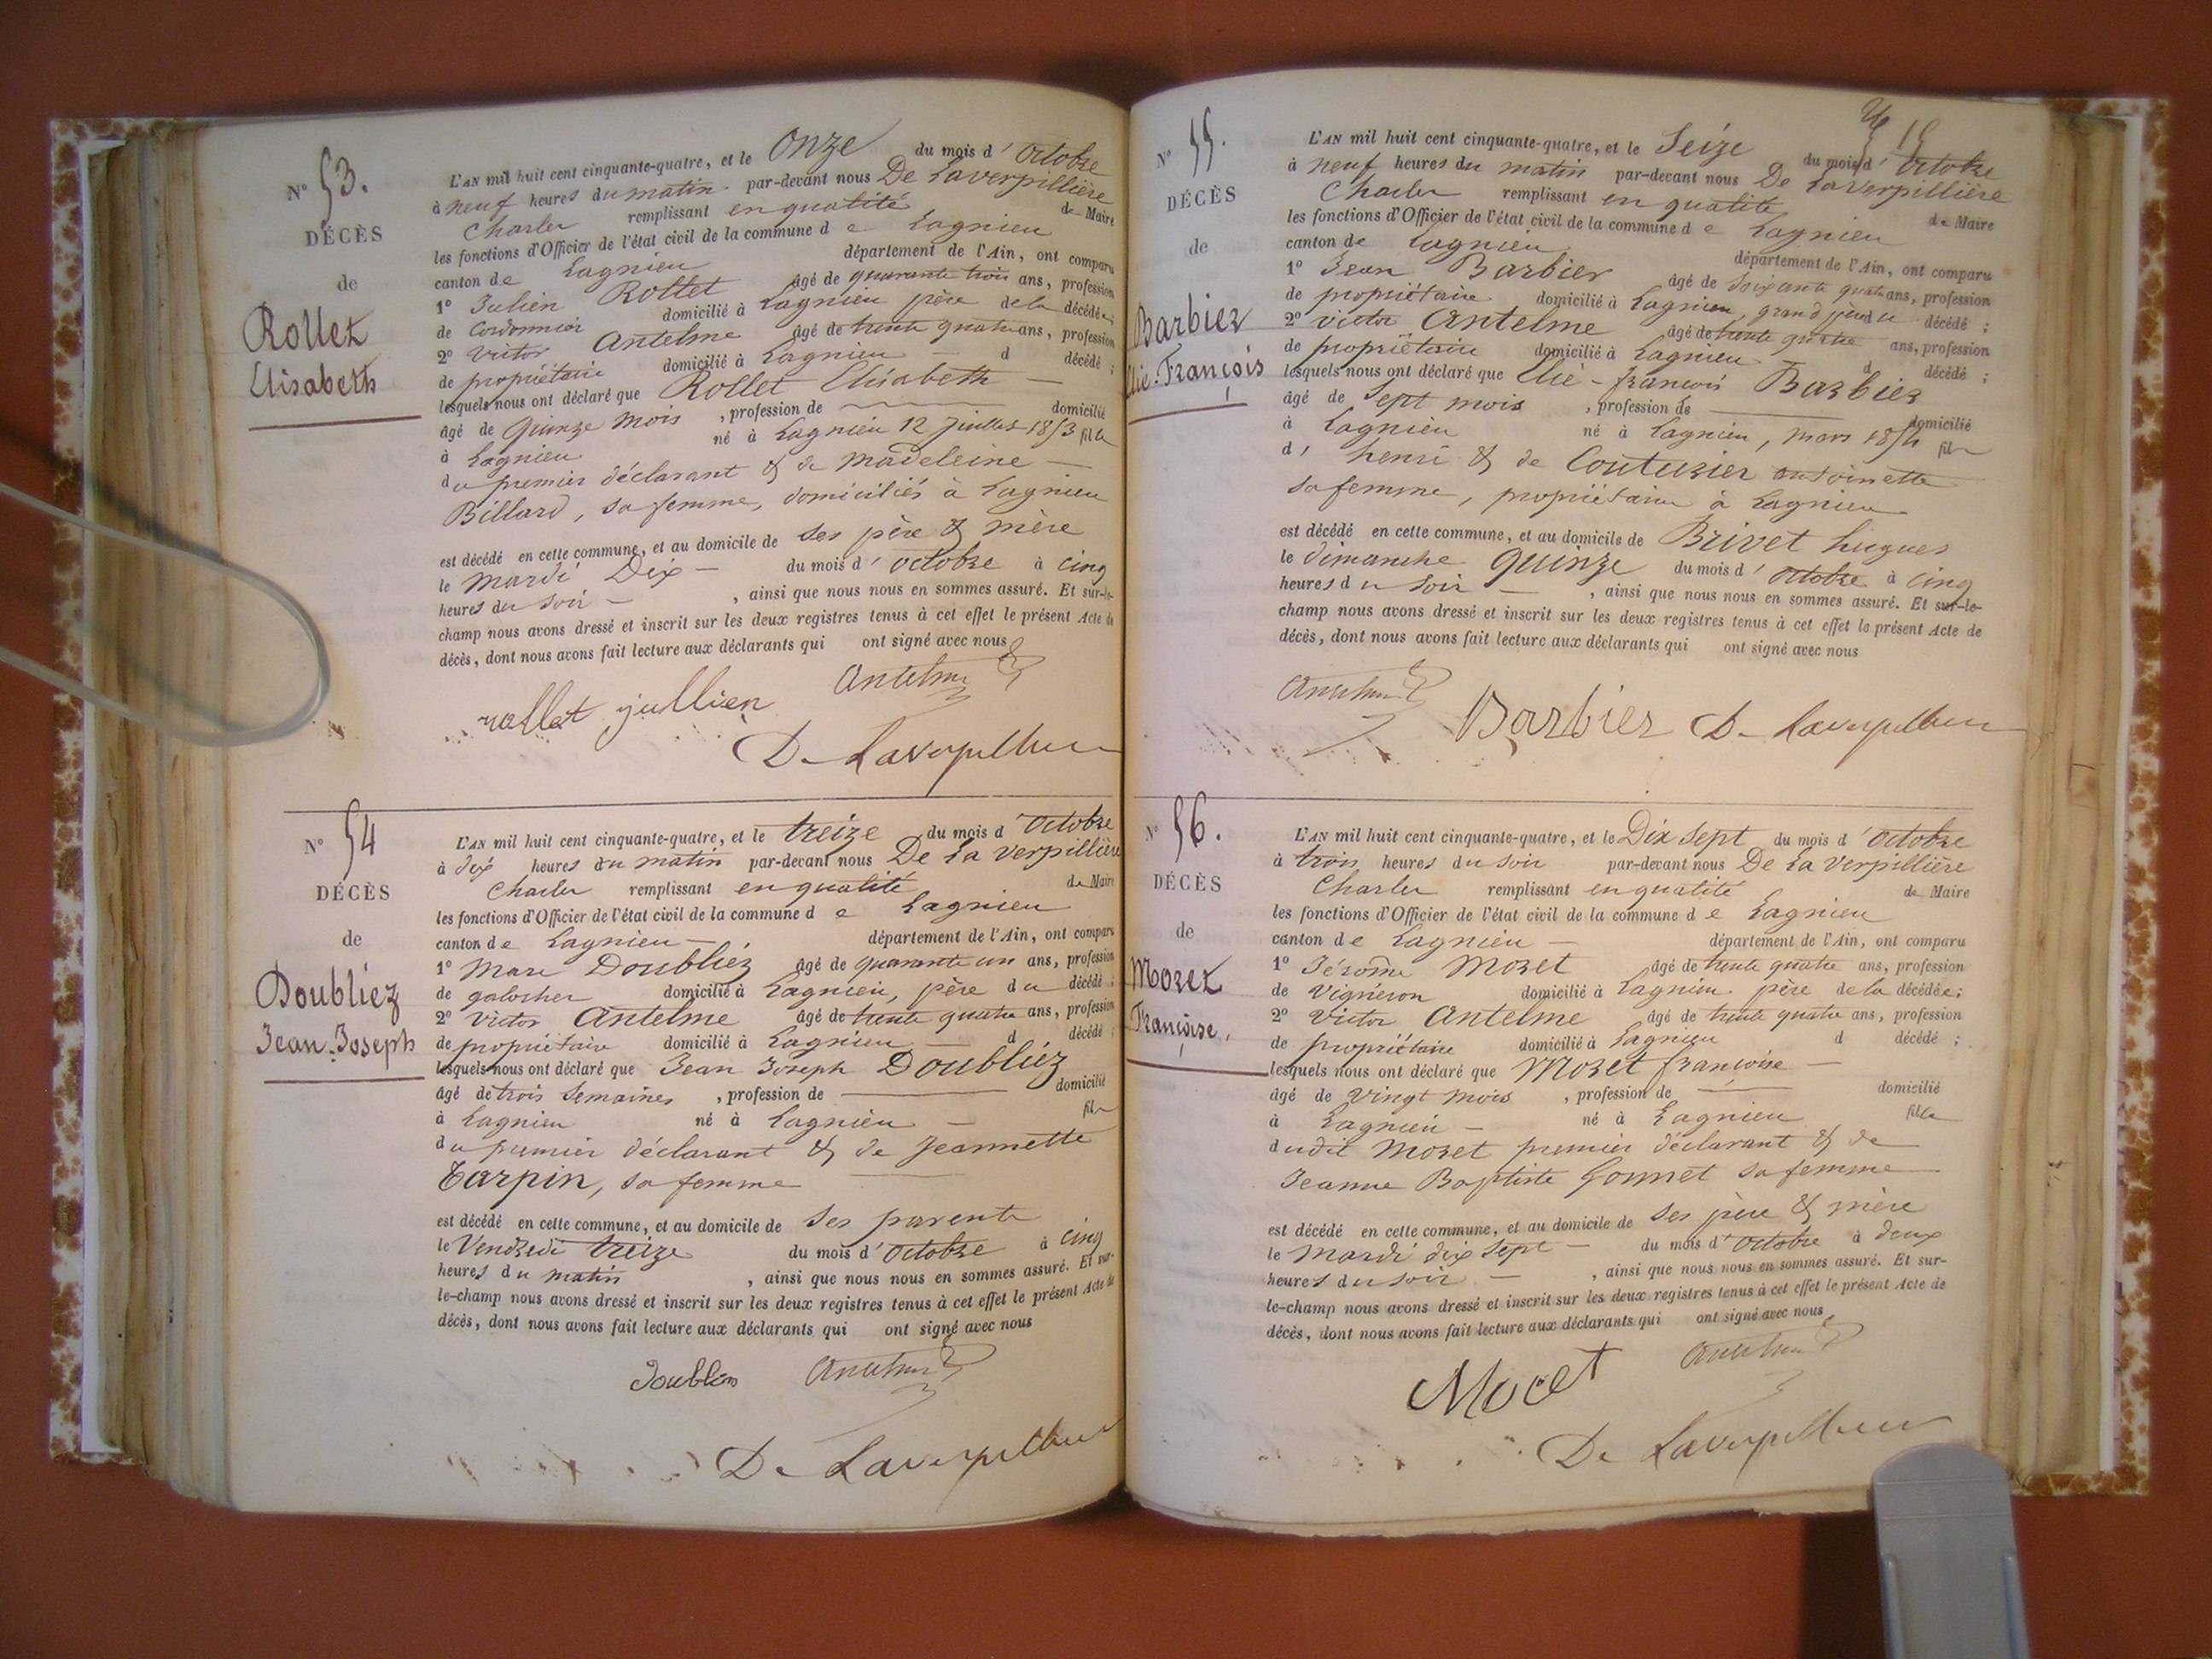 N° 53.
DÉCÈS
de
Rollet
Elisabeth
L'AN mil huit cent cinquante-quatre, et le Onze du mois d' Octobre
à neuf heures du matin par-devant nous De Laverpillière
Charles remplissant en qualité de Maire
les fonctions d'Officier de l'état civil de la commune de Lagnieu
canton de Lagnieu département de l'Ain, ont comparu
1° Julien Rollet âgé de quarante trois ans, profession
de Cordonnier domicilié à Lagnieu père de la décédée;
2° Victor Antelme âgé de trente quatre ans, profession
de propriétaire domicilié à Lagnieu — d décédé ;
lesquels nous ont déclaré que Rollet Elisabeth —
âgé de Quinze mois , profession de — domicilié
à Lagnieu né à Lagnieu 12 Juillet 1853 fille
du premier déclarant & de Madeleine —
Billard, sa femme, domiciliés à Lagnieu
est décédé en cette commune, et au domicile de ses père & mère
le mardi Dix — du mois d' octobre à cinq
heures du soir — , ainsi que nous nous en sommes assuré. Et sur-le-
champ nous avons dressé et inscrit sur les deux registres tenus à cet effet le présent Acte de
décès, dont nous avons fait lecture aux déclarants qui ont signé avec nous
rollet jullien Antelme
De Laverpilliere
N° 54
DÉCÈS
de
Doubliez
Jean-Joseph
L'AN mil huit cent cinquante-quatre, et le treize du mois d' Octobre
à dix heures du matin par-devant nous De La verpillière
Charles remplissant en qualité de Maire
les fonctions d'Officier de l'état civil de la commune de Lagnieu
canton de Lagnieu — département de l'Ain, ont comparu
1° Marc Doubliez âgé de quarante un ans, profession
de galocher domicilié à Lagnieu, père du décédé ;
2° Victor Antelme âgé de trente quatre ans, profession
de propriétaire domicilié à Lagnieu — d décédé ;
lesquels nous ont déclaré que Jean Joseph Doubliez
âgé de trois semaines , profession de — domicilié
à Lagnieu né à Lagnieu — fils
du premier déclarant & de Jeannette
Tarpin, sa femme —
est décédé en cette commune, et au domicile de ses parents
le Vendredi treize du mois d' Octobre à cinq
heures du matin , ainsi que nous nous en sommes assuré. Et sur-
le-champ nous avons dressé et inscrit sur les deux registres tenus à cet effet le présent Acte de
décès, dont nous avons fait lecture aux déclarants qui ont signé avec nous
Antelme
De Laverpilliere
N° 55.
DÉCÈS
de
Barbier
Elie-François
L'AN mil huit cent cinquante-quatre, et le Seize du mois d' Octobre
à neuf heures du matin par-devant nous De Laverpillière
Charles remplissant en qualité de Maire
les fonctions d'Officier de l'état civil de la commune de Lagnieu
canton de Lagnieu département de l'Ain, ont comparu
1° Jean Barbier âgé de soixante quatre ans, profession
de propriétaire domicilié à Lagnieu, grand père du décédé ;
2° victor Antelme âgé de trente quatre ans, profession
de propriétaire domicilié à Lagnieu d décédé ;
lesquels nous ont déclaré que Elie-françois Barbier
âgé de sept mois , profession de — domicilié
à Lagnieu né à Lagnieu, mars 1854 fils
d' henri & de Couturier antoinette
sa femme, propriétaires à Lagnieu
est décédé en cette commune, et au domicile de Brivet hugues
le dimanche quinze du mois d' octobre à cinq
heures du soir — , ainsi que nous nous en sommes assuré. Et sur-le-
champ nous avons dressé et inscrit sur les deux registres tenus à cet effet le présent Acte de
décès, dont nous avons fait lecture aux déclarants qui ont signé avec nous
Antelme Barbier De Laverpilliere
N° 56.
DÉCÈS
de
Moret
Françoise,
L'AN mil huit cent cinquante-quatre, et le Dix sept du mois d' Octobre
à trois heures du soir par-devant nous De La Verpillière
Charles remplissant en qualité de Maire
les fonctions d'Officier de l'état civil de la commune de Lagnieu
canton de Lagnieu — département de l'Ain, ont comparu
1° Jérôme Moret âgé de trente quatre ans, profession
de Vigneron domicilié à Lagnieu père de la décédée;
2° Victor Antelme âgé de trente quatre ans, profession
de propriétaire domicilié à Lagnieu d décédé ;
lesquels nous ont déclaré que Moret françoise —
âgé de Vingt mois , profession de — domicilié
à Lagnieu — né à Lagnieu fille
dudit Moret premier déclarant & de
Jeanne Baptiste Gonnet sa femme
est décédé en cette commune, et au domicile de ses père & mère
le mardi dix sept — du mois d' Octobre à deux
heures du soir — , ainsi que nous nous en sommes assuré. Et sur-
le-champ nous avons dressé et inscrit sur les deux registres tenus à cet effet le présent Acte de
décès, dont nous avons fait lecture aux déclarants qui ont signé avec nous
Moret Antelme
De Laverpilliere